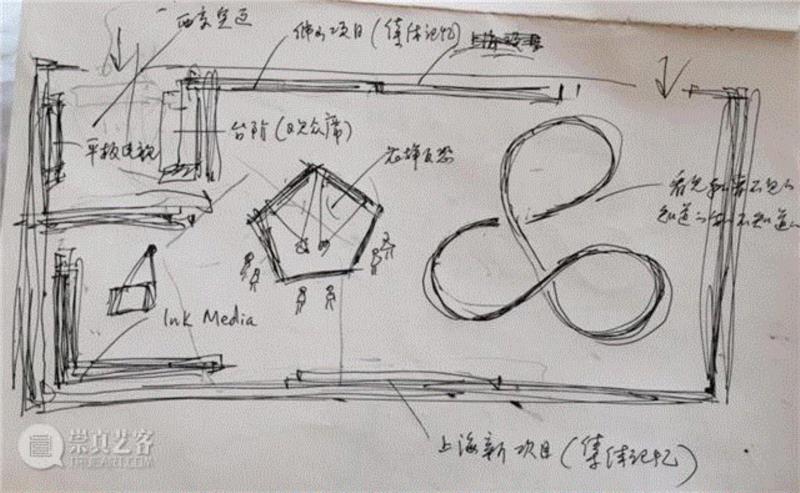 项目(集体记忆)
台阶(观众席)
平板电视
看见和看不见的
知道的和不知道的
Ink Media
上海新项目(集体记忆)
崇真艺客
TRUEART.COM